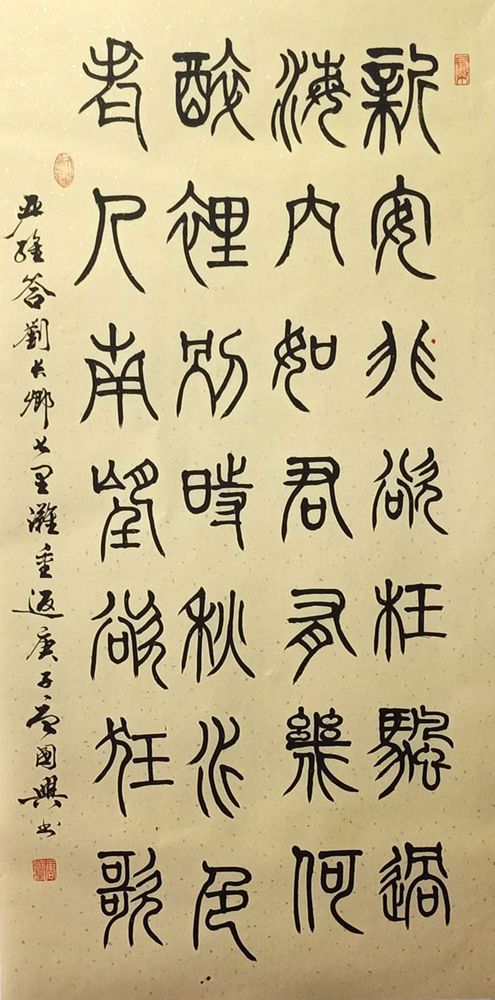 新安非欲枉颿過
海內如君有幾何
醉裡別時秋水色
者人南望欲狂歌
答劉長卿七里灘重返庚子國興書